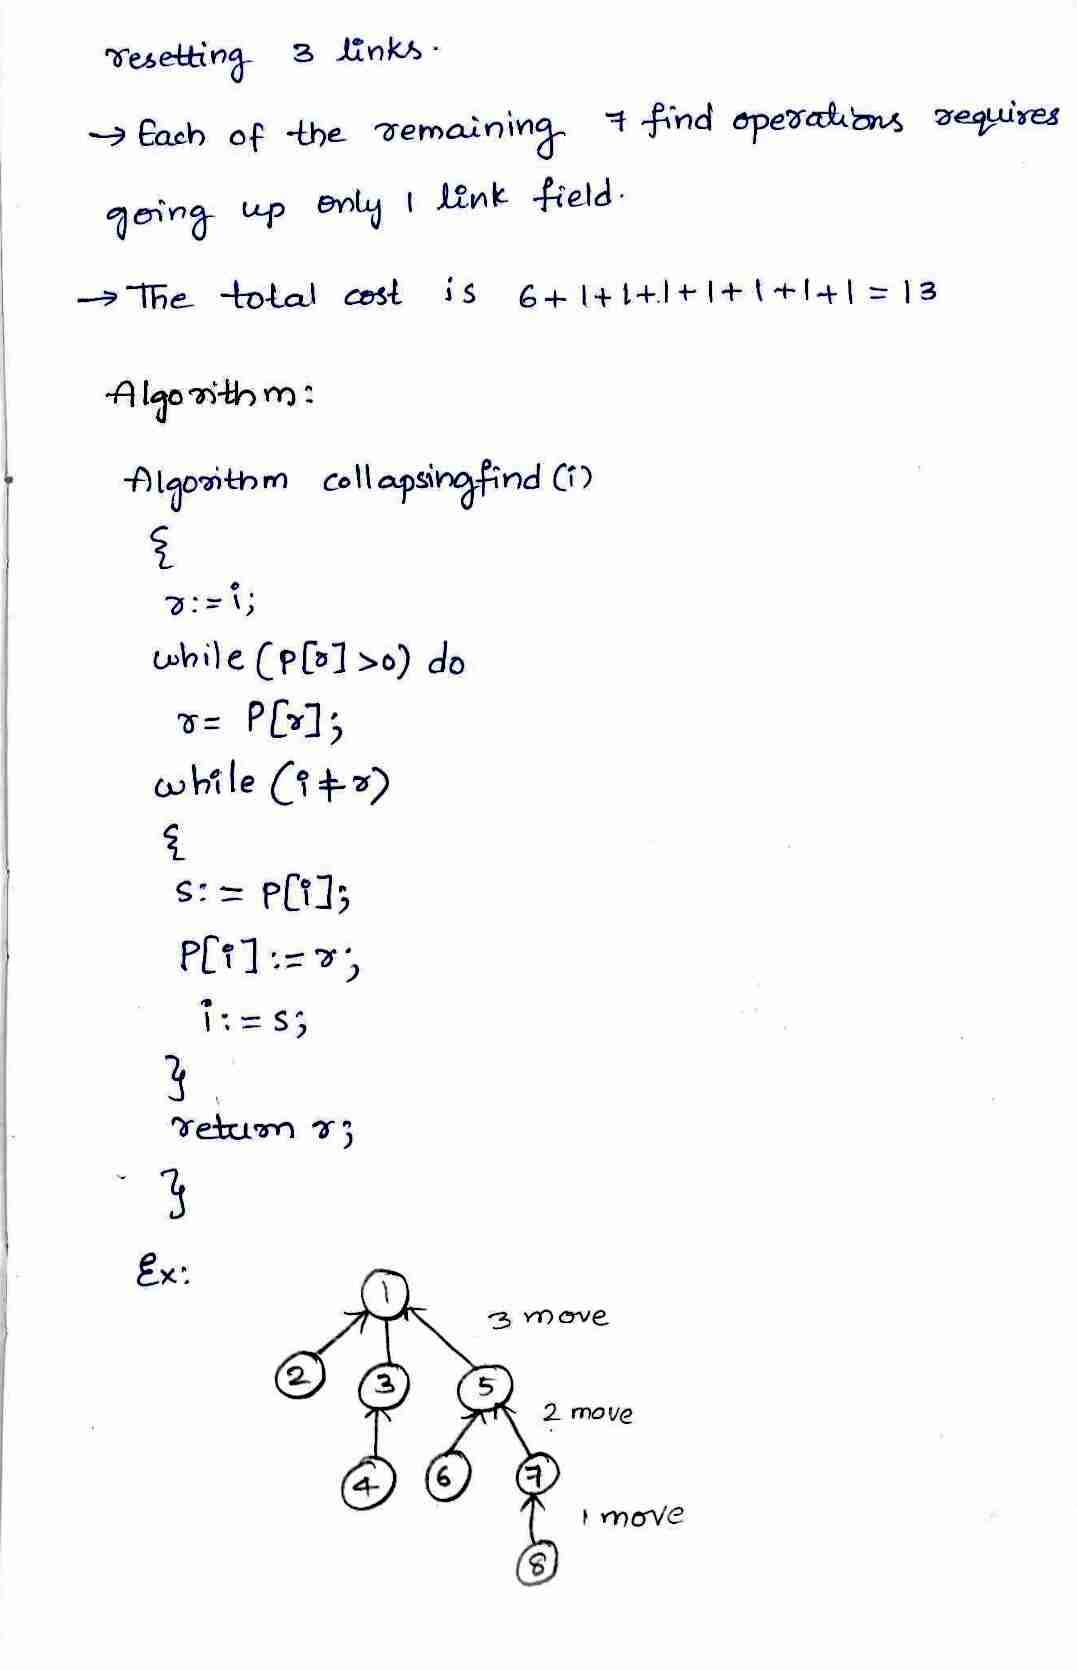 resetting 3 links.
→ Each of the remaining 7 find operations requires
going up only 1 link field.
→ The total cost is 6+1+1+1+1+1+1+1=13
Algorithm:
Algorithm collapsingfind (i)
{
r:=i;
while (P[r] >0) do
r= P[r];
while (i≠r)
{
s:= P[i];
P[i]:=r;
i:=s;
}
return r;
}
Ex:
1
3 move
2 3 5
2 move
4 6 7
1 move
8